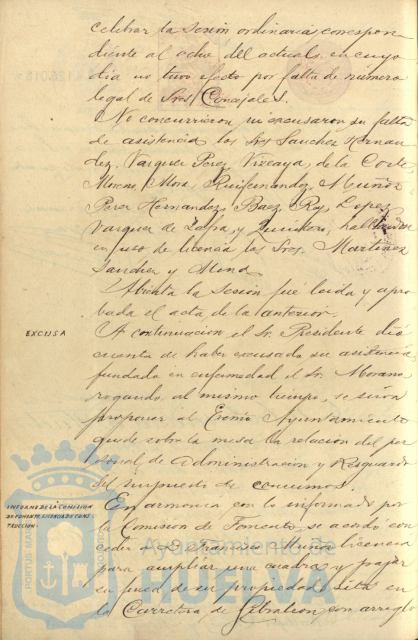 celebrar la sesión ordinaria correspon
diente al ocho del actual, en cuyo
día no tuvo efecto por falta de número
legal de Sres Concejales.
No concurrieron, ni excusaron su falta
de asistencia los Sres Sanchez Hernan
dez, Vazquez Perez, Vizcaya, de la Corte,
Moreno, Mora, Ruifernandez, Muñoz
Perez Hernandez, Baez, Rey, Lopez
Vazquez de Zafra, y
en uso de licencia los Sres. Martinez
Sanchez y Mena
Abierta la Sesión fué leida y apro
bada el acta de la anterior.
EXCUSA
A continuación el Sr. Presidente dió
cuenta de haber excusado su asistencia
fundada en enfermedad el Sr. Morano
rogando al mismo tiempo, se sirva
proponer al Excmo Ayuntamiento
quede sobre la mesa la relación del per
sonal de Administracion y Resguardo
del impuesto de consumos.
INFORME DE LA COMISION
DE FOMENTO, LICENCIA DE CONS
TRUCCION
En armonia con lo informado por
la Comision de Fomento, se acordó con
ceder a D. Francisco Muñoz licencia
para ampliar una cuadra y pajar
en finca de su propiedad sita en
la Carretera de Gibraleon con arreglo
Ayuntamiento de
HUELVA
PORTUS MARIS